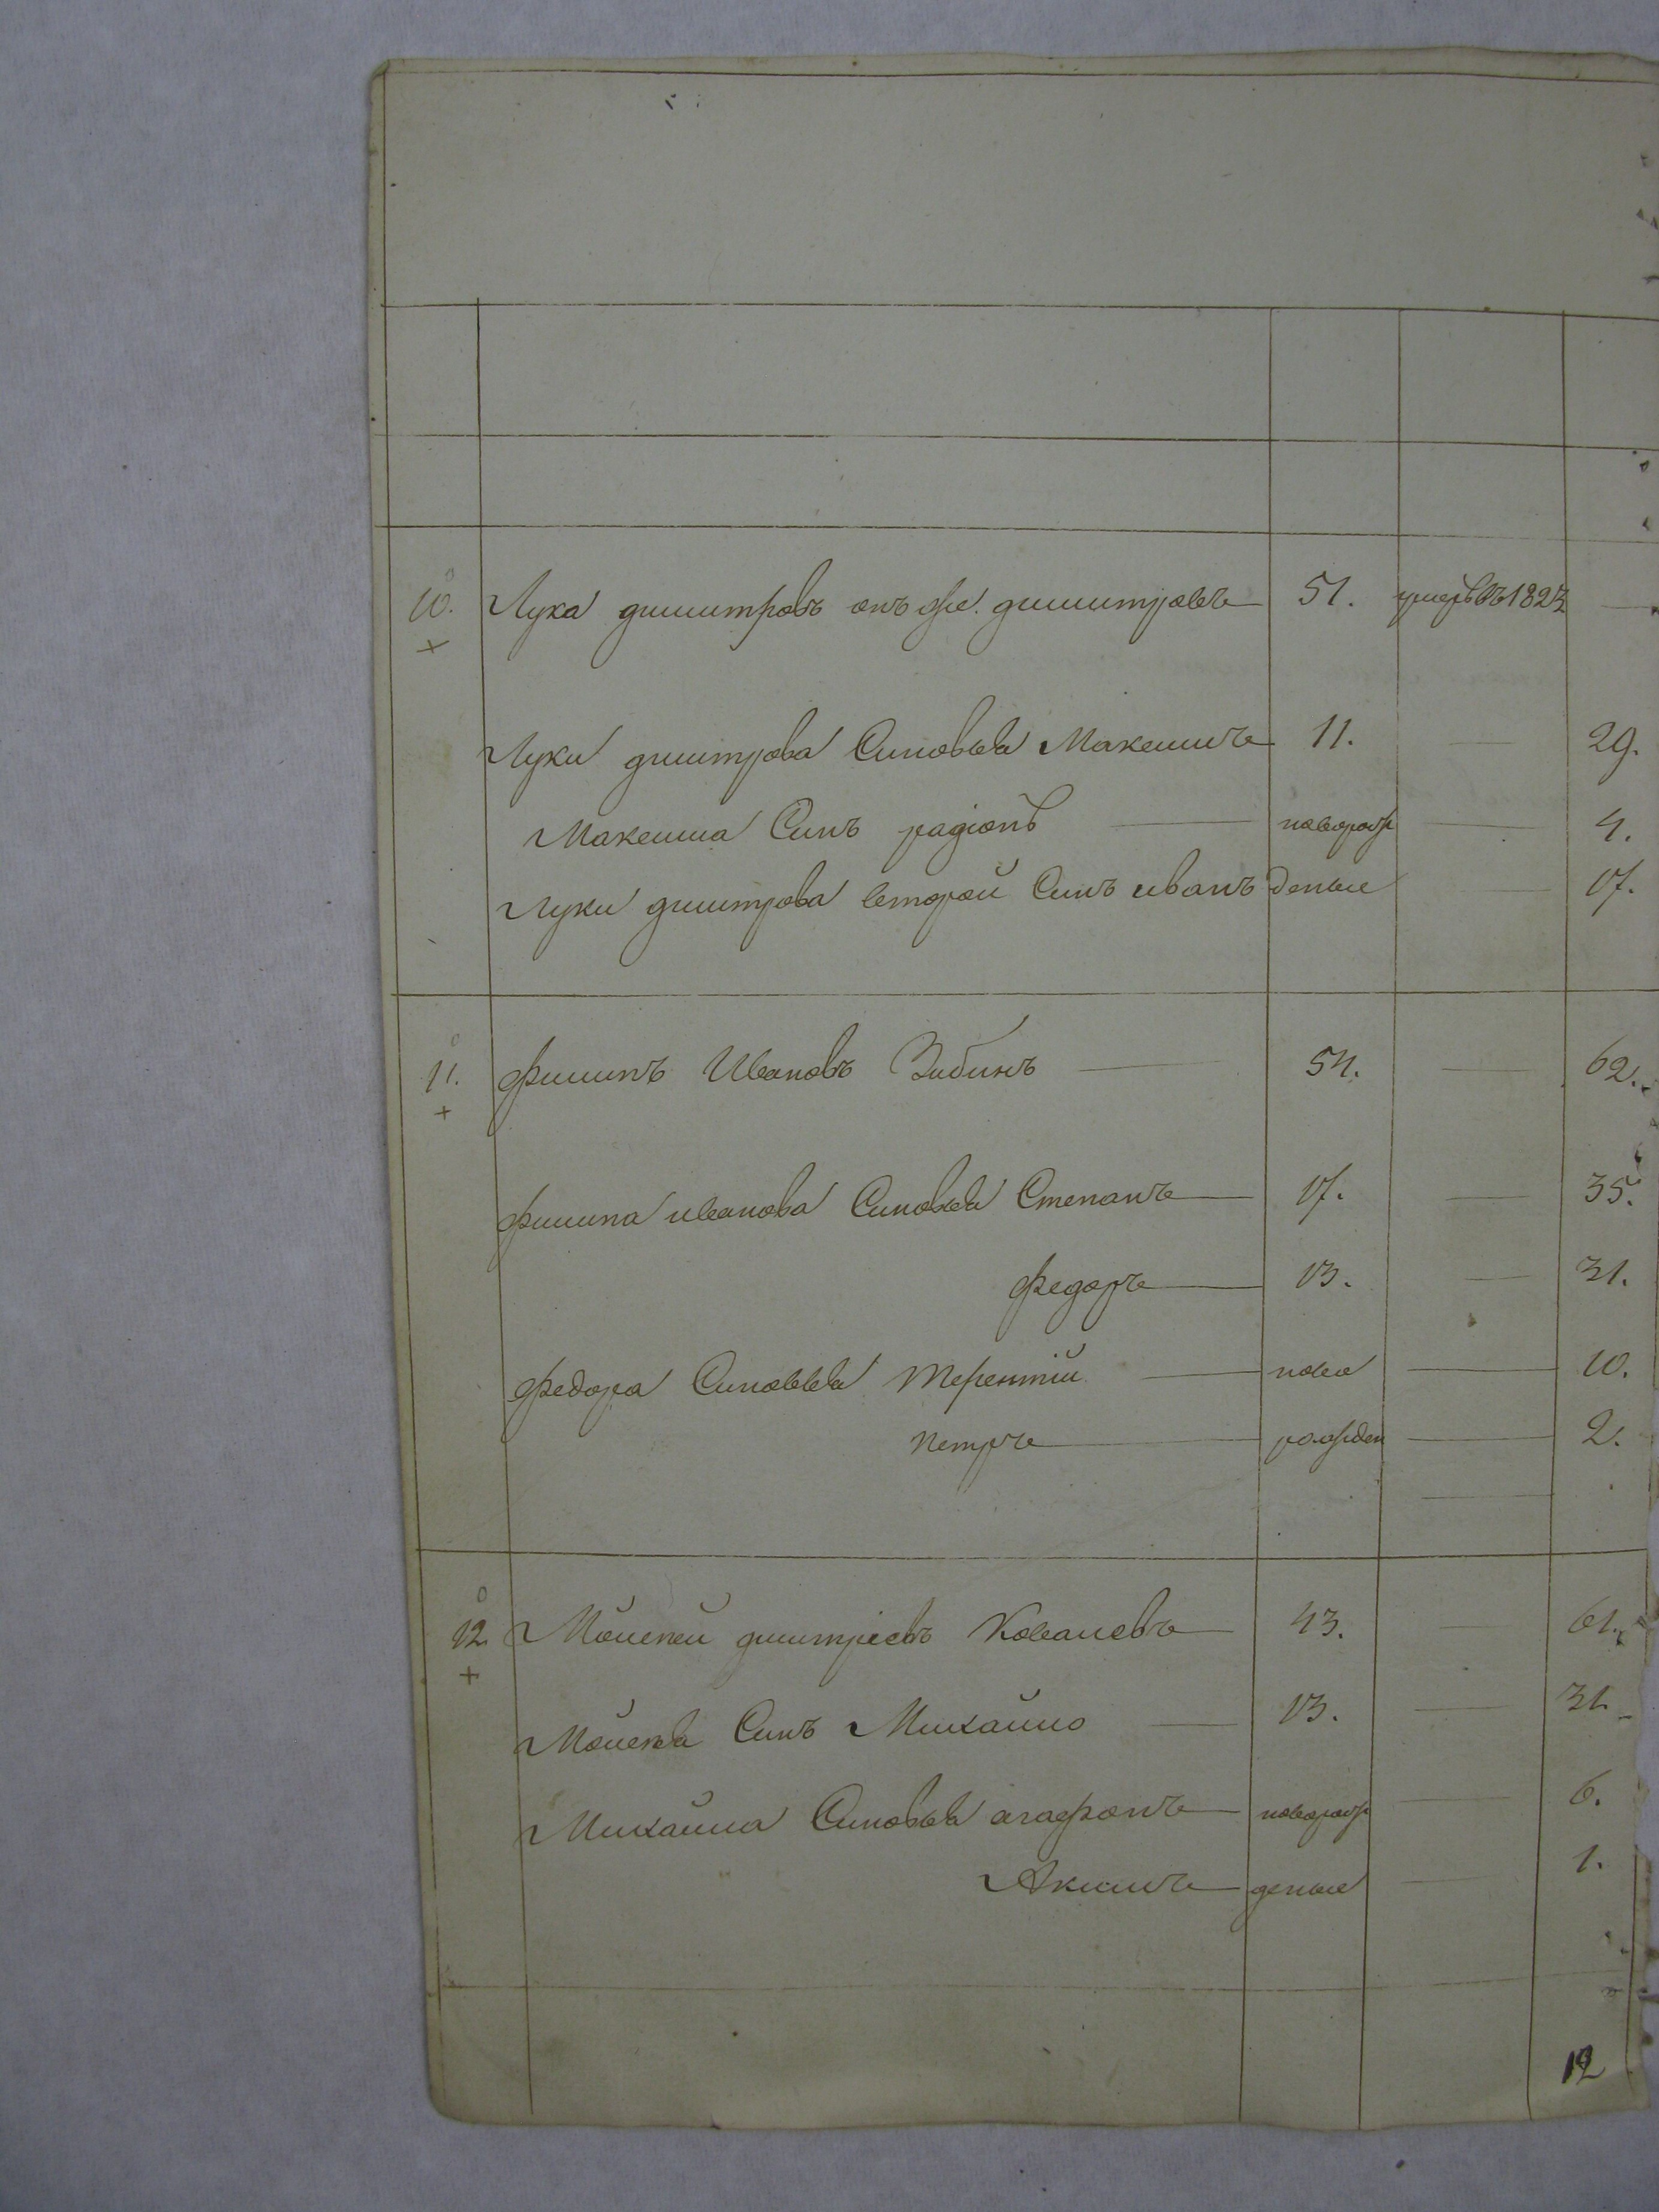 10. Лука димитровъ онъ же димитровъ 51. умеръ въ 1823 —
Луки дмитрова Сыновья Максимъ 11. — 29.
Максима Сынъ радіонъ — новорож — 4.
Луки дмитрова второй Сынъ иванъ деные — 17.
11. филипъ Ивановъ Зыбинъ — 54. — 62.
филипа иванова Сыновья Степанъ — 17. — 35.
федоръ — 13. — 31.
федора Сыновья терентій — ново — 10.
петръ — рожден — 2.
12. Моисей дмитріевъ — 43. — 61.
Моисея Сынъ Михайло — 13. — 31.
Михайла Сыновья агафонъ — новорож — 6.
Акимъ — деные — 1.
12